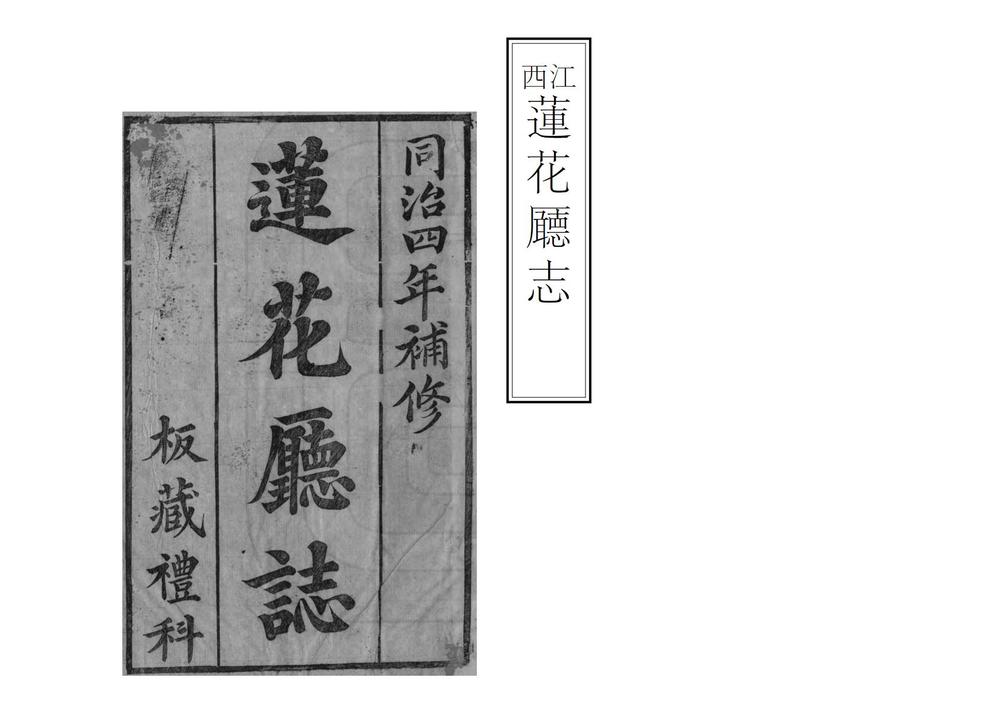 江西
蓮花廳志
同治四年補修
蓮花廳誌
板藏禮科